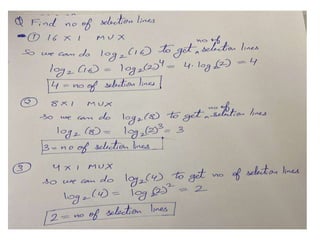 Q Find no of selection lines
→ ① 16 × 1 MUX
so we can do log₂(16) to get no of selection lines
log₂(16) = log₂(2)⁴ = 4·log₂(2) = 4
4 = no of selection lines
② 8×1 MUX
so we can do log₂(8) to get no of selection lines
log₂(8) = log₂(2)³ = 3
3 = no of selection lines
③ 4×1 MUX
so we can do log₂(4) to get no of selection lines
log₂(4) = log₂(2)² = 2
2 = no of selection lines